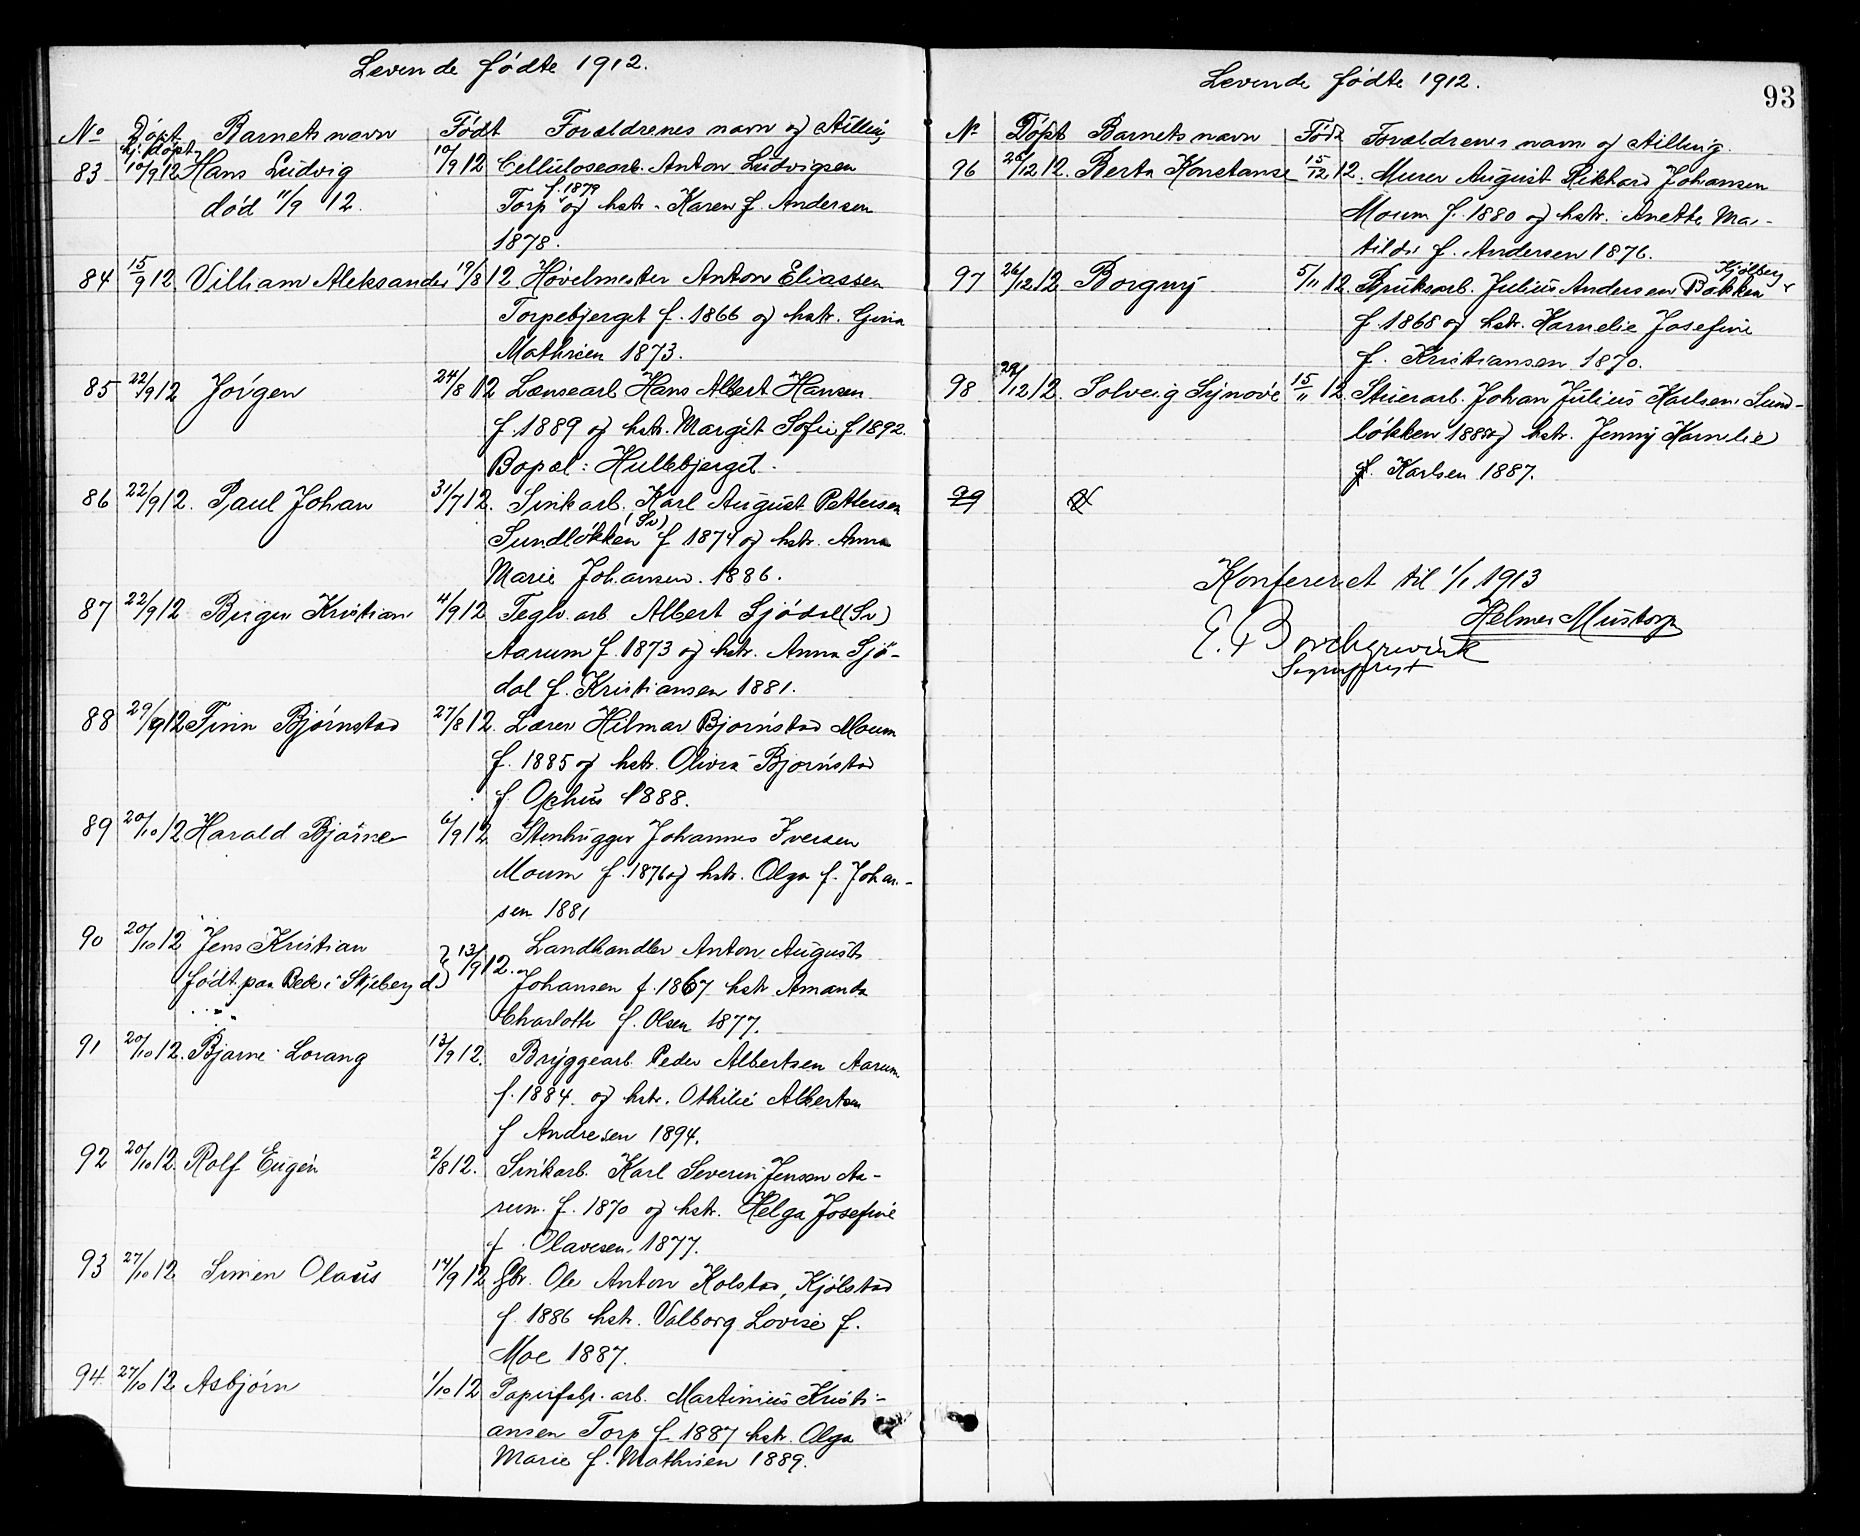 Levende fødte 1912.
No Døpt Barnets navn Født Forældrenes navn og stilling
hj. døpt
83 10/9 12 Hans Ludvig 10/9 12 Cellulosearb. Anton Ludvigsen
død 11/9 12. Torp f. 1879 og hstr. Karen f. Andersen
1878.
84 15/9 12 Villiam Aleksander 19/8 12 Høvelmester Anton Eliassen
Torpebjerget f. 1866 og hstr. Gina
Mathisen 1873.
85 22/9 12 Jørgen 24/8 12 Lensearb Hans Albert Hansen
f. 1889 og hstr. Margit Sofie f 1892.
Bopæl: Hullebjerget.
86 22/9 12. Paul Johan 31/7 12. Sinkarb. Karl August Pettersen
Sundløkken (Sv) f 1874 og hstr. Anna
Marie Johansen. 1886.
87 22/9 12 Birger Kristian 4/9 12 Teglv. arb Albert Sjødal (Sv)
Aarum f. 1873 og hstr. Anna Sjø-
dal f. Kristiansen 1881.
88 29/9 12 Finn Bjørnstad 27/8 12. Lærer Hilmar Bjørnstad Moum
f. 1885 og hstr. Olivia Bjørnstad
f. Ophus 1888.
89 20/10 12 Harald Bjarne 6/9 12 Stenhugger Johannes Iversen
Moum f. 1876 og hstr. Olga f. Johan-
sen 1881
90 20/10 12 Jens Kristian 13/9 12. Landhandler Anton August
født paa Bede i Skjeberg d. Johansen f. 1867 hstr Amanda
Charlotte f. Olsen 1877.
91 20/10 12. Bjarne Lorang 13/9 12. Bryggearb. Peder Albertsen Aarum
f. 1884 og hstr. Othilie Albertsen
f Andresen 1894.
92 20/10 12. Rolf Eugen 2/8 12. Sinkarb. Karl Severin Jensen Aa-
rum. f. 1870 og hstr. Helga Josefine
f. Olavesen. 1877.
93 27/10 12 Simen Olaus 14/9 12 Gbr. Ole Anton Kolstad, Kjølstad
f. 1886 hstr. Valborg Lovise f.
Moe 1887.
94. 27/10 12 Asbjørn 1/10 12 Papirfabr. arb. Martinius Kristi-
ansen Torp f. 1887 hstr. Olga
Marie f. Mathisen 1889.
Levende fødte 1912.
93
No Døpt Barnets navn Født Forældrenes navn og stilling.
96 26/12 12. Berta Konstanse 15/12 12. Murer August Rikhard Johansen
Moum f. 1880 og hstr. Anette Ma-
tilde f. Andersen 1876.
97 26/12 12 Borgny 5/11 12. Bruksarb. Julius Andersen Bakken Kjølberg
f 1868 og hstr. Kornelie Josefine
f. Kristiansen 1870.
98 29/12 12. Solveig Synøve 15/11 12 Stuerarb. Johan Julius Karlsen, Sund-
løkken 1885 og hstr. Jenny Kornelie
f. Karlsen 1887.
99
Konfereret til 1/1 1913
Helmer Mustorp
E. Borchgrevink
Sogneprest